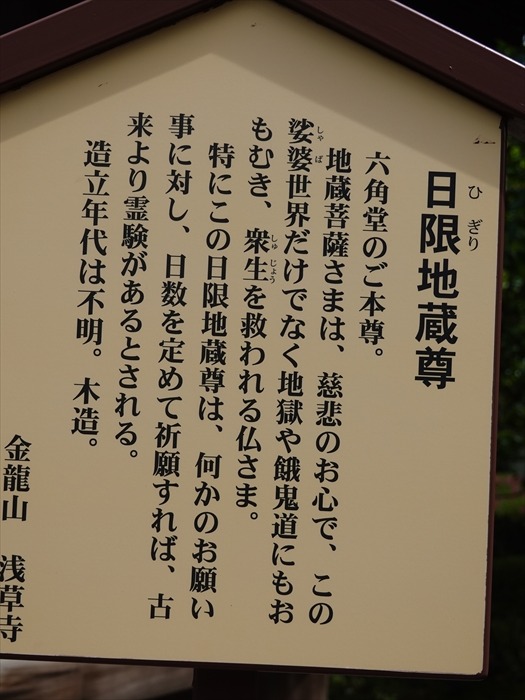 日限地蔵尊
ひぎり
六角堂のご本尊。
地蔵菩薩さまは、慈悲のお心で、この
娑婆世界だけでなく地獄や餓鬼道にもお
しゃば
もむき、衆生を救われる仏さま。
しゅじょう
特にこの日限地蔵尊は、何かのお願い
事に対し、日数を定めて祈願すれば、古
来より霊験があるとされる。
造立年代は不明。木造。
金龍山 浅草寺